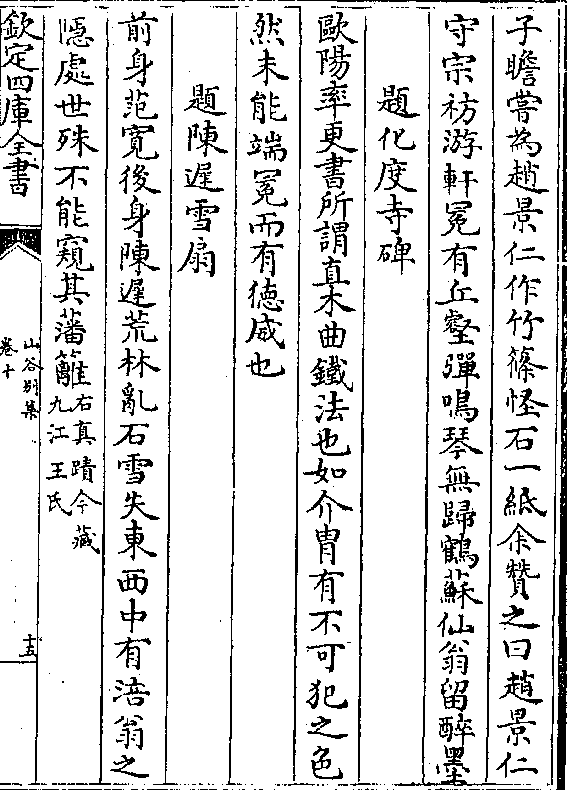 子瞻嘗為趙景仁作竹篠怪石一紙余贊之曰趙景仁
守宗祊游軒冕有丘壑彈鳴琴無歸鶴蘇仙翁留醉墨
題化度寺碑
歐陽率更書所謂直木曲鐵法也如介冑有不可犯之色
然未能端冕而有德威也
題陳遲雪扇
前身范寛後身陳遲荒林亂石雪失東西中有涪翁之
隠處世殊不能窺其藩籬右真蹟今藏九江王氏
欽定四庫全書
山谷别集
卷十
十五